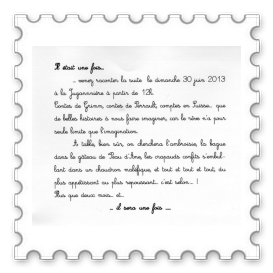 Il était une fois...
... venez raconter la suite le dimanche 30 juin 2013
à la Jugannière à partir de 12h.
Contes de Grimm, contes de Perrault, comptes en Suisse... que
de belles histoires à nous faire imaginer, car le rêve n'a pour
seule limite que l'imagination.
A table, bien sûr, on cherchera l'ambroisie, la bague
dans le gâteau de Peau d'Ane, les crapauds confits s'embul-
lant dans un chaudron maléfique, et tout et tout et tout, du
plus appétissant au plus repoussant... c'est selon... !
Plus que deux mois... et...
... il sera une fois ...